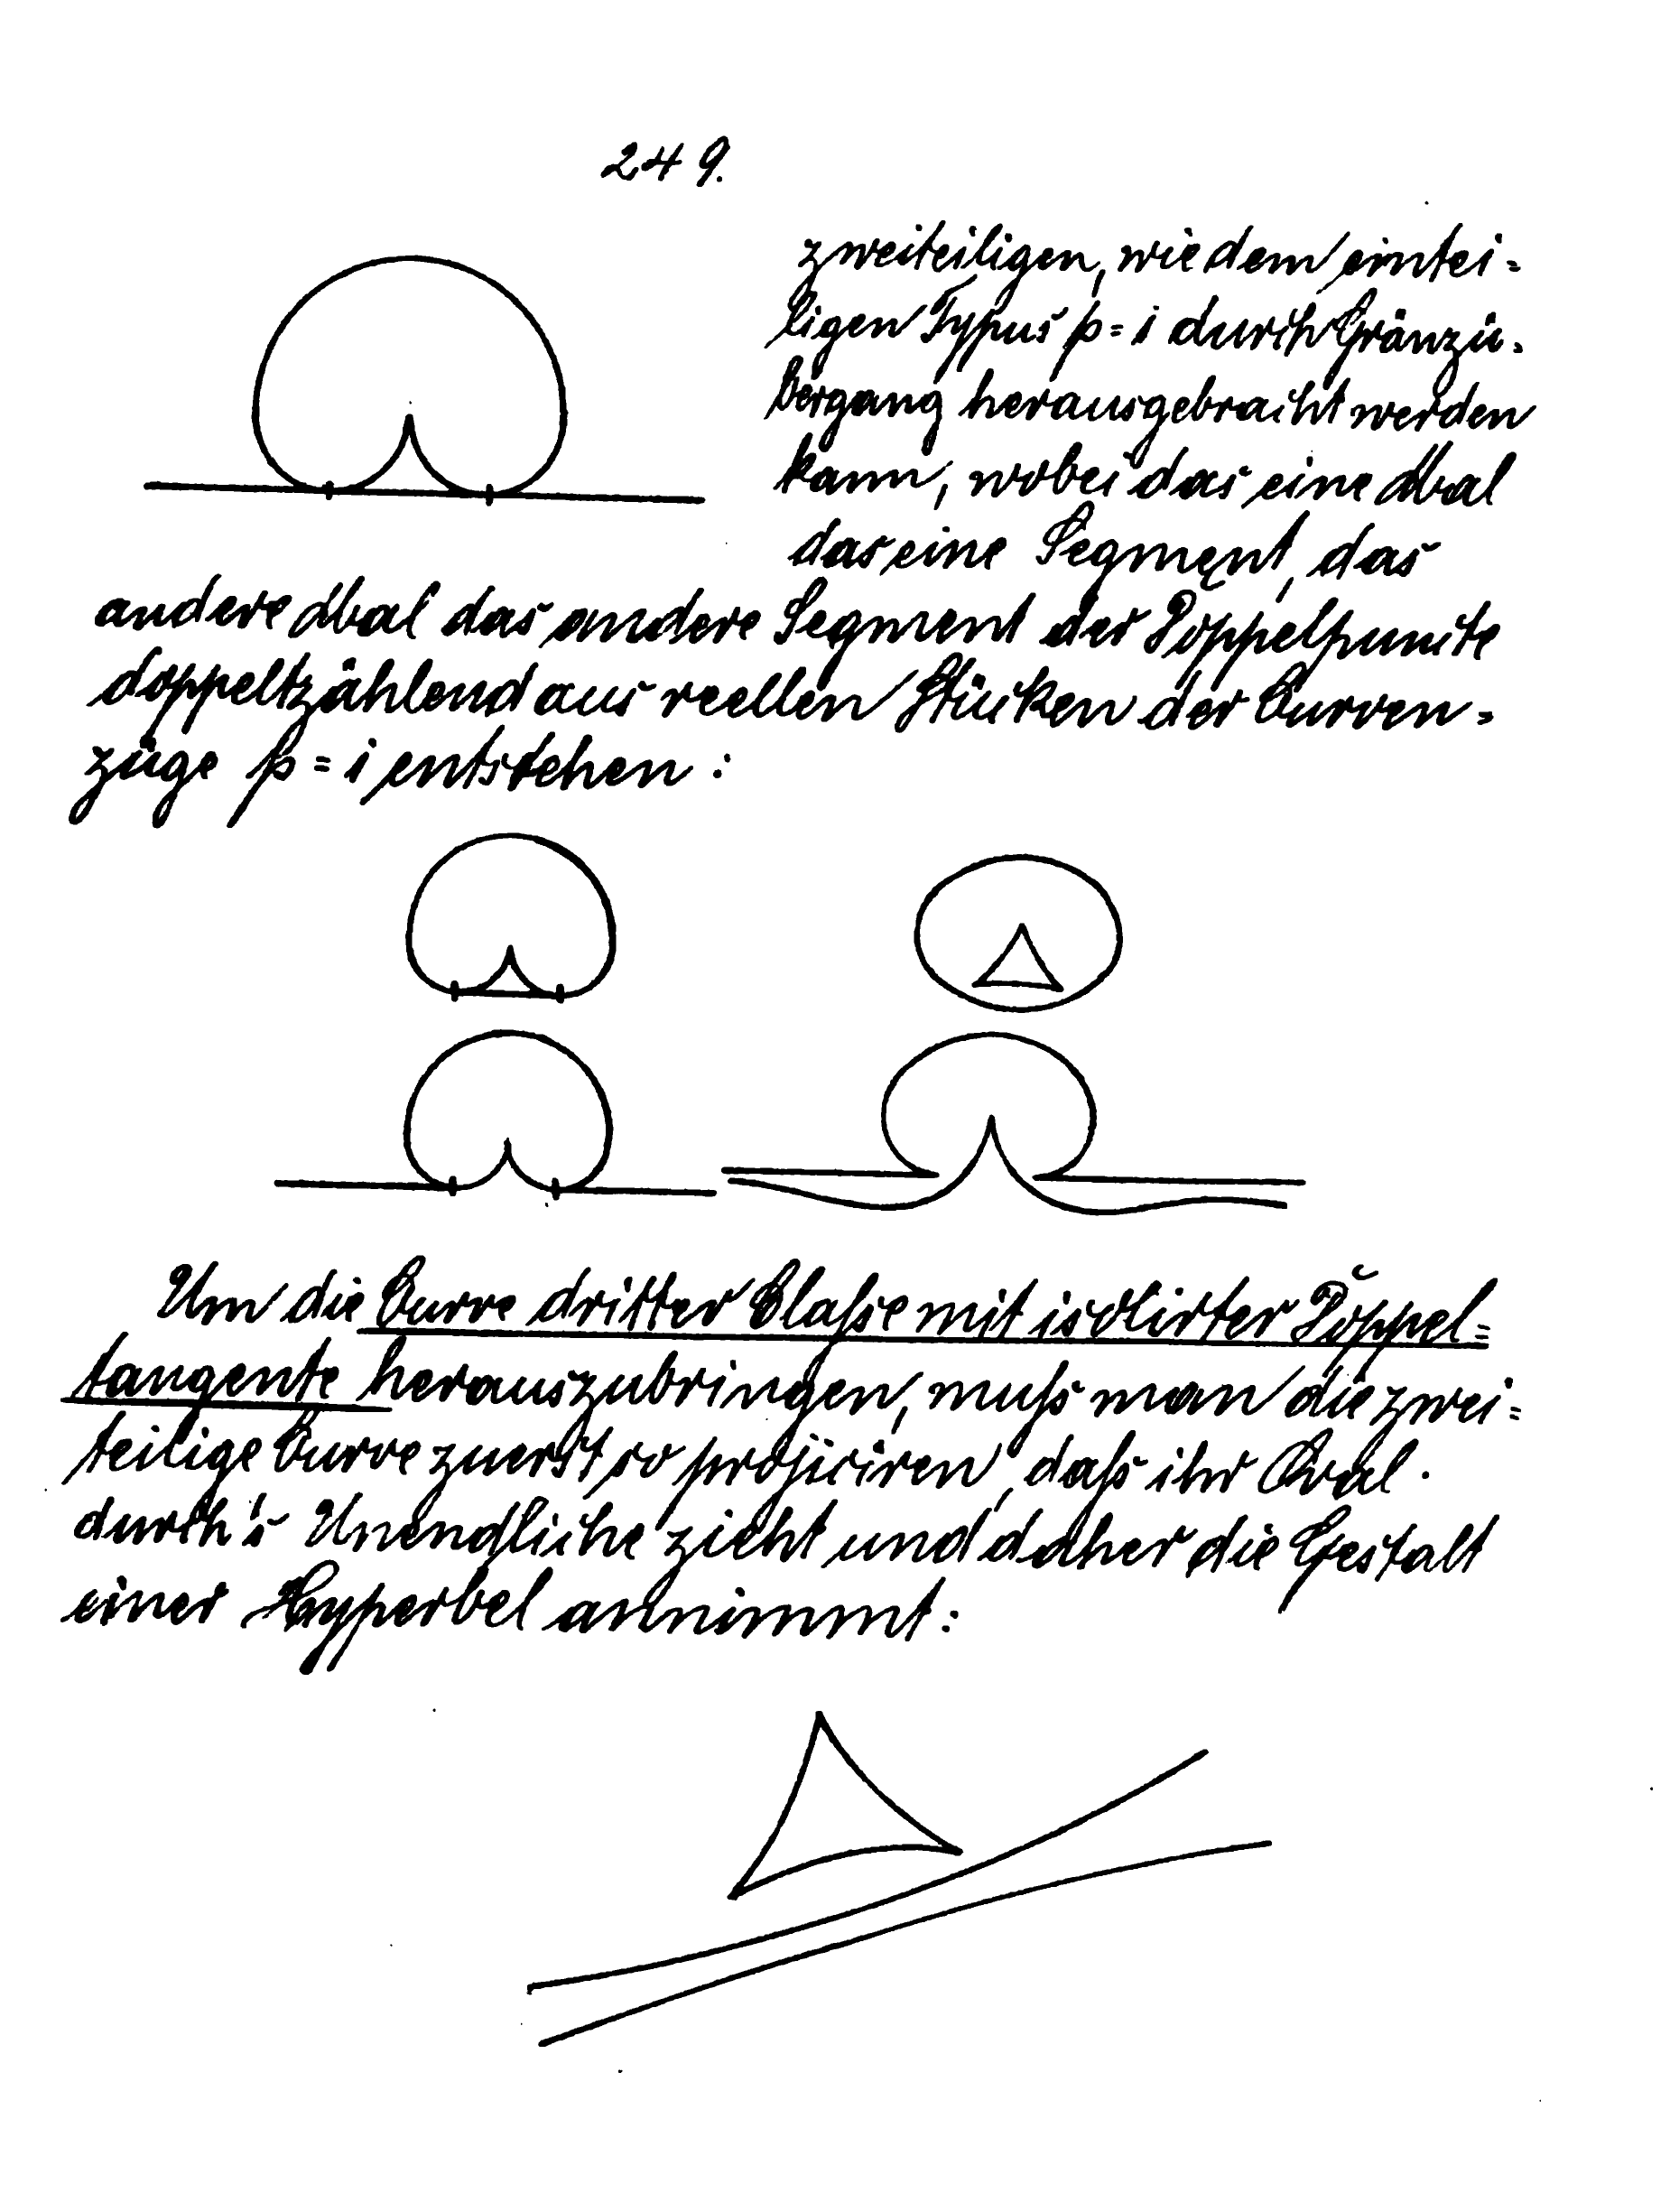 249.
zweiteiligen, wie dem eintei=
ligen Typus p=1 durch Gränzü=
bergang herausgebracht werden
kann, wobei das eine Mal
das eine Segment, das
andere Mal das andere Segment der Doppelpuncte
doppeltzählend aus reellen Stücken der Curven=
züge p=1 entstehen:
Um die Curve dritter Classe mit isolirter Doppel=
tangente herauszubringen, muss man die zwei=
teilige Curve zuerst so projiciren, dass ihr Oval
durch's Unendliche zieht und daher die Gestalt
einer Hyperbel annimmt: